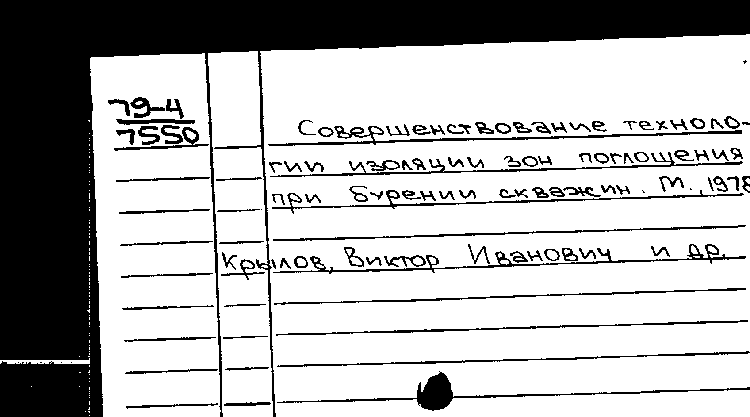 79-4
7550
Совершенствование техноло-
гии изоляции зон поглощения
при бурении скважин. М., 1978
Крылов, Виктор Иванович и др.